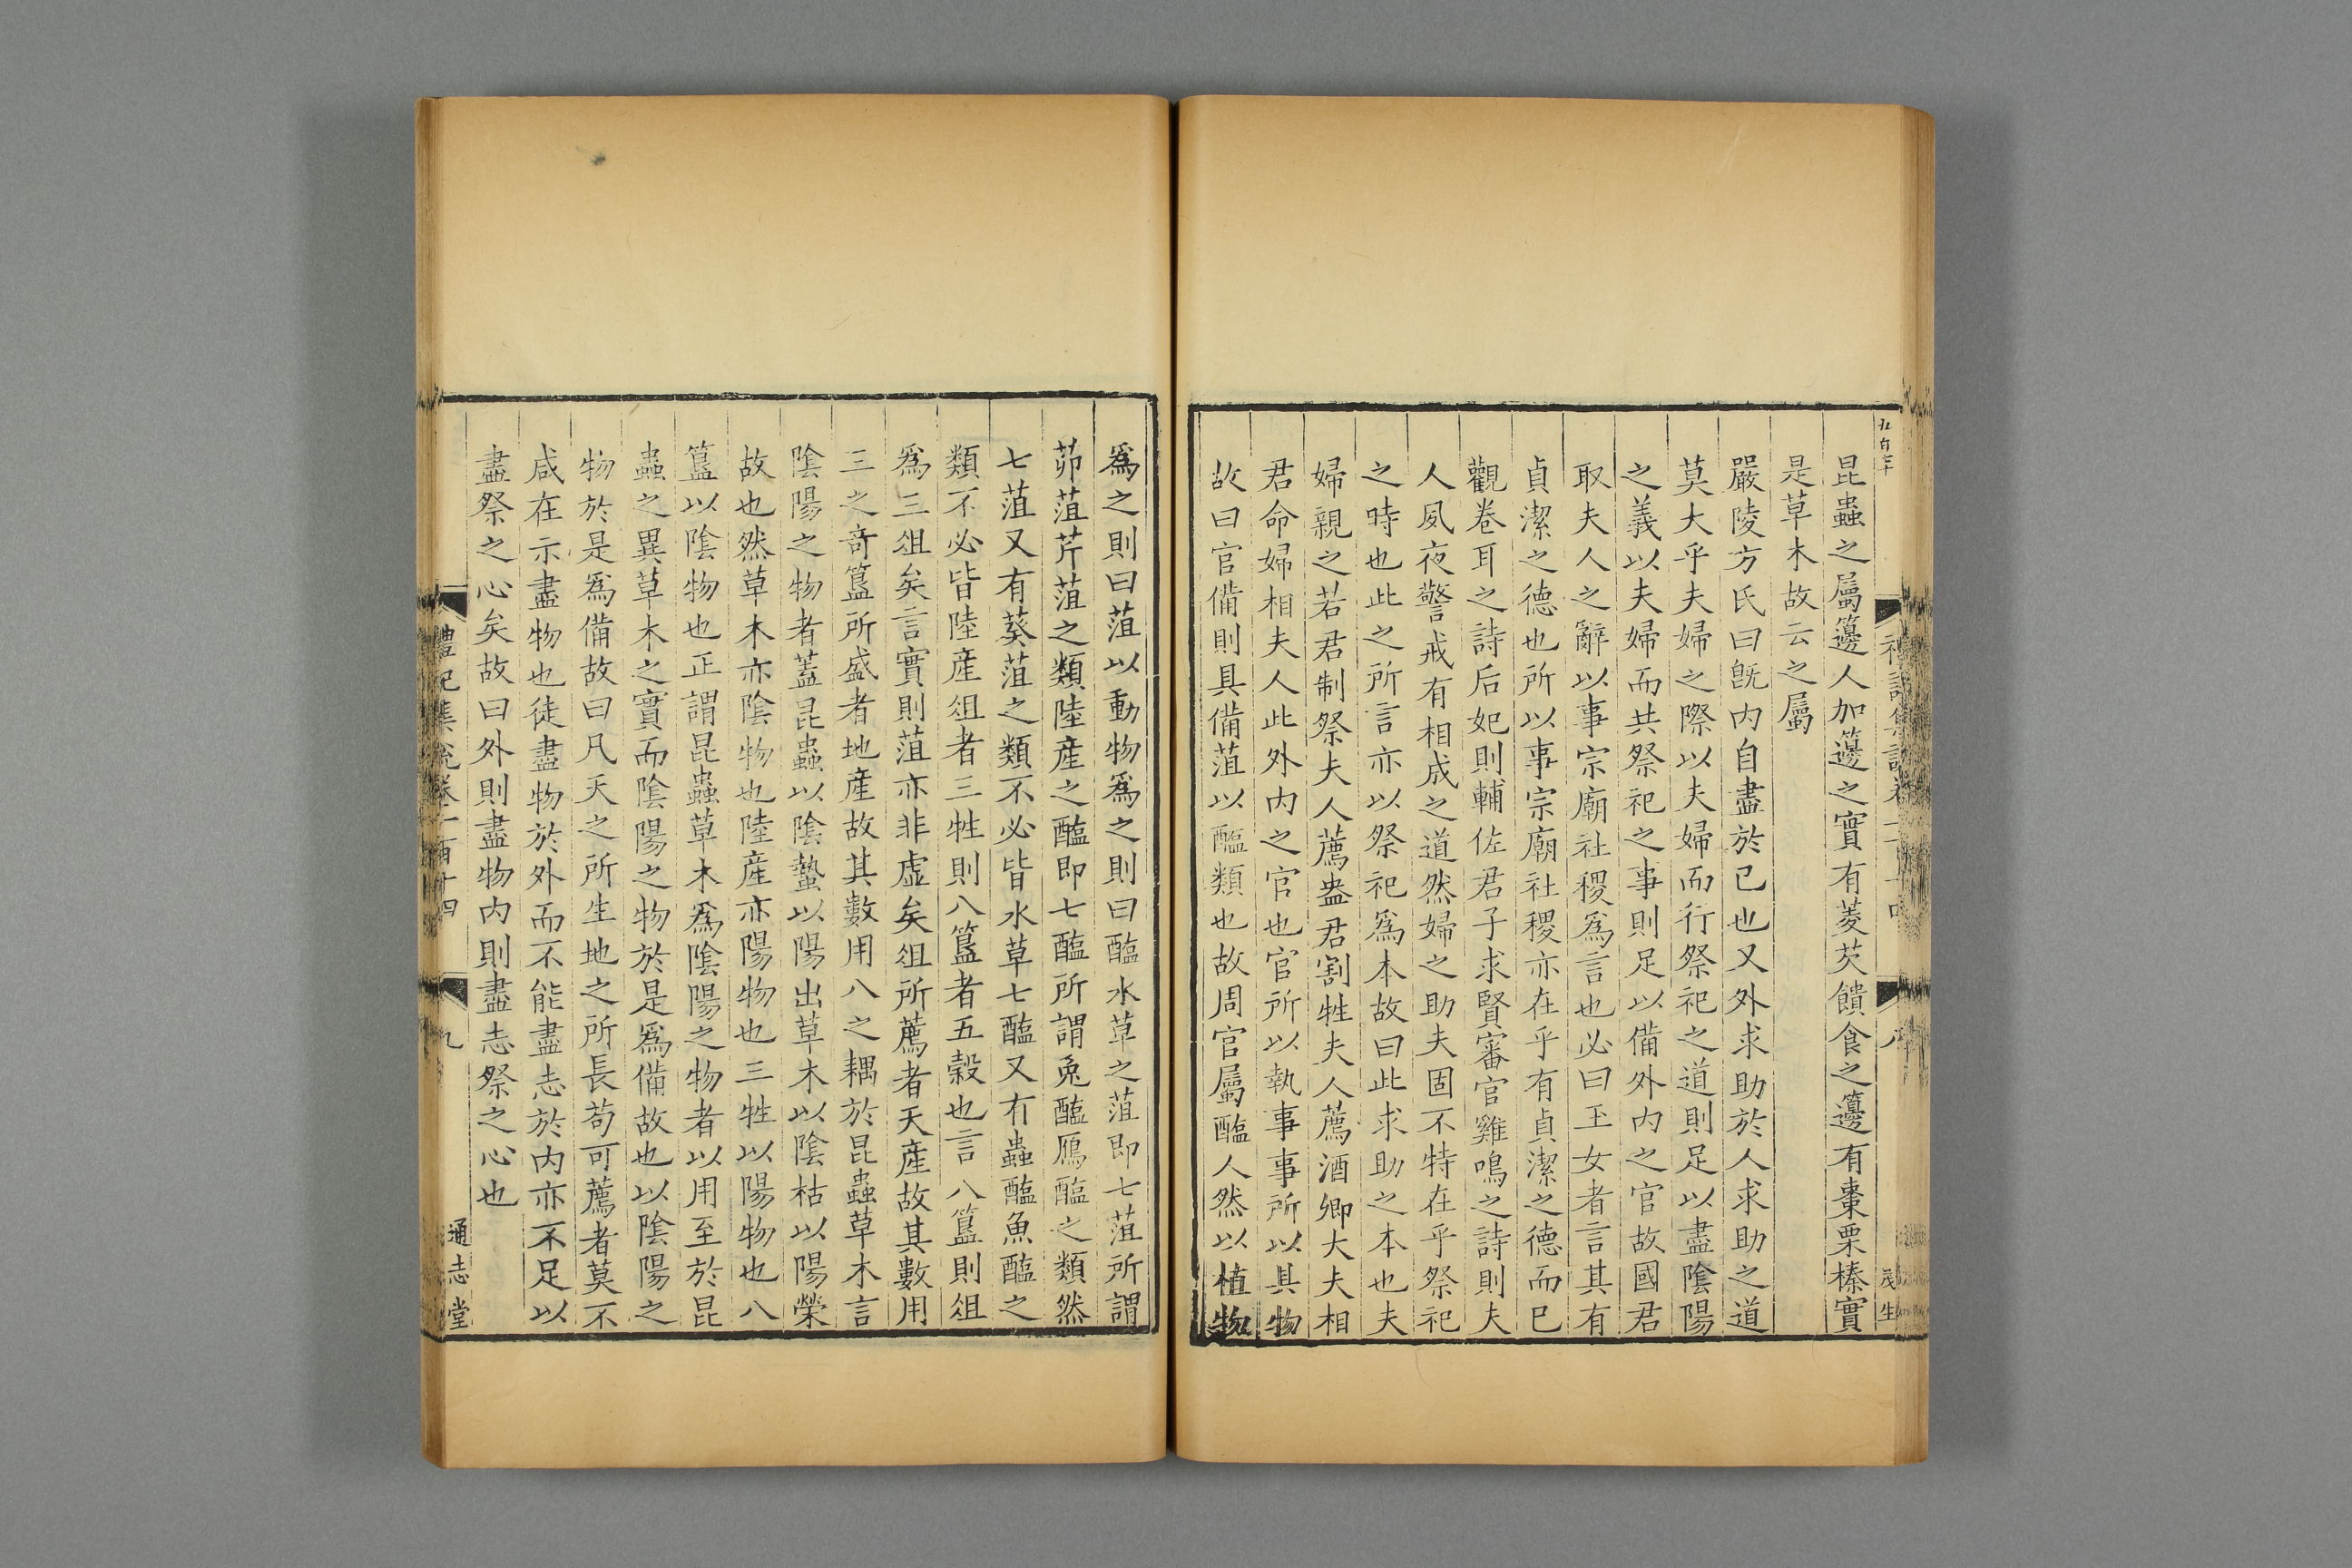 昆蟲之屬籩人加籩之實有菱芡饋食之籩有棗栗榛實
是草木故云之屬
嚴陵方氏曰旣内自盡於已也又外求助於人求助之道
莫大乎夫婦之際以夫婦而行祭祀之道則足以盡陰陽
之義以夫婦而共祭祀之事則足以備外内之官故國君
取夫人之辭以事宗廟社稷爲言也必曰玉女者言其有
貞潔之德也所以事宗廟社稷亦在乎有貞潔之德而已
觀卷耳之詩后妃則輔佐君子求賢審官雞鳴之詩則夫
人夙夜警戒有相成之道然婦之助夫固不特在乎祭祀
之時也此之所言亦以祭祀爲本故曰此求助之本也夫
婦親之若君制祭夫人薦盎君割牲夫人薦酒卿大夫相
君命婦相夫人此外内之官也官所以執事事所以具物
故曰官備則具備菹以醢類也故周官屬醢人然以植物
茂生
爲之則曰菹以動物爲之則曰醢水草之菹即七菹所謂
茆菹芹菹之類陸産之醢即七醢所謂兔醢鴈醢之類然
七菹又有葵菹之類不必皆水草七醢又有蟲醢魚醢之
類不必皆陸産俎者三牲則八簋者五穀也言八簋則俎
爲三俎矣言實則菹亦非虛矣俎所薦者天産故其數用
三之奇簋所盛者地産故其數用八之耦於昆蟲草木言
陰陽之物者蓋昆蟲以陰蟄以陽出草木以陰枯以陽榮
故也然草木亦陰物也陸産亦陽物也三牲以陽物也八
簋以陰物也正謂昆蟲草木爲陰陽之物者以用至於昆
蟲之異草木之實而陰陽之物於是爲備故也以陰陽之
物於是爲備故曰凡天之所生地之所長苟可薦者莫不
咸在示盡物也徒盡物於外而不能盡志於内亦不足以
盡祭之心矣故曰外則盡物内則盡志祭之心也
禮記集說卷一百十四
九
通志堂